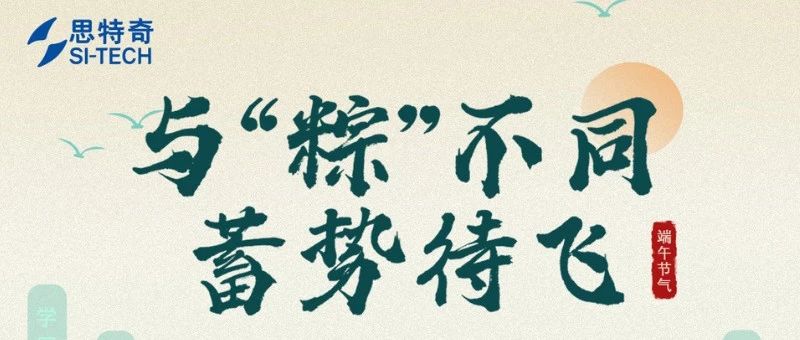 思特奇
SI-TECH
与“粽”不同
蓄势待飞
端午节气
学